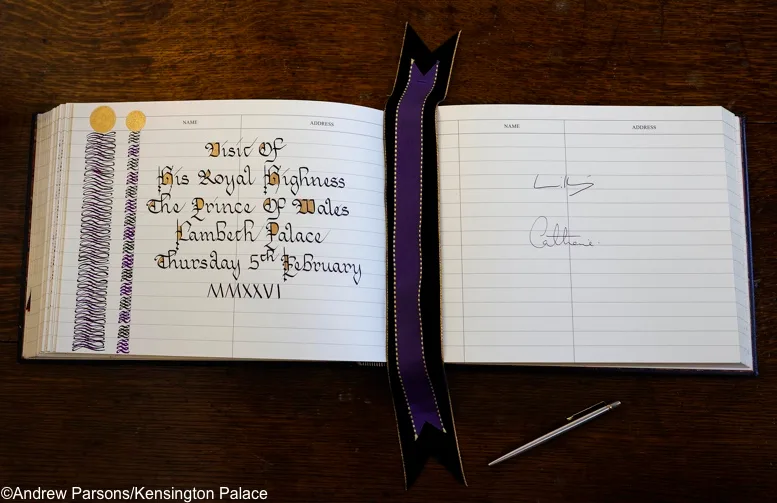 NAME ADDRESS
Visit Of
His Royal Highness
The Prince Of Wales
Lambeth Palace
Thursday 5th February
MMXXVI
NAME ADDRESS
Catherine
©Andrew Parsons/Kensington Palace